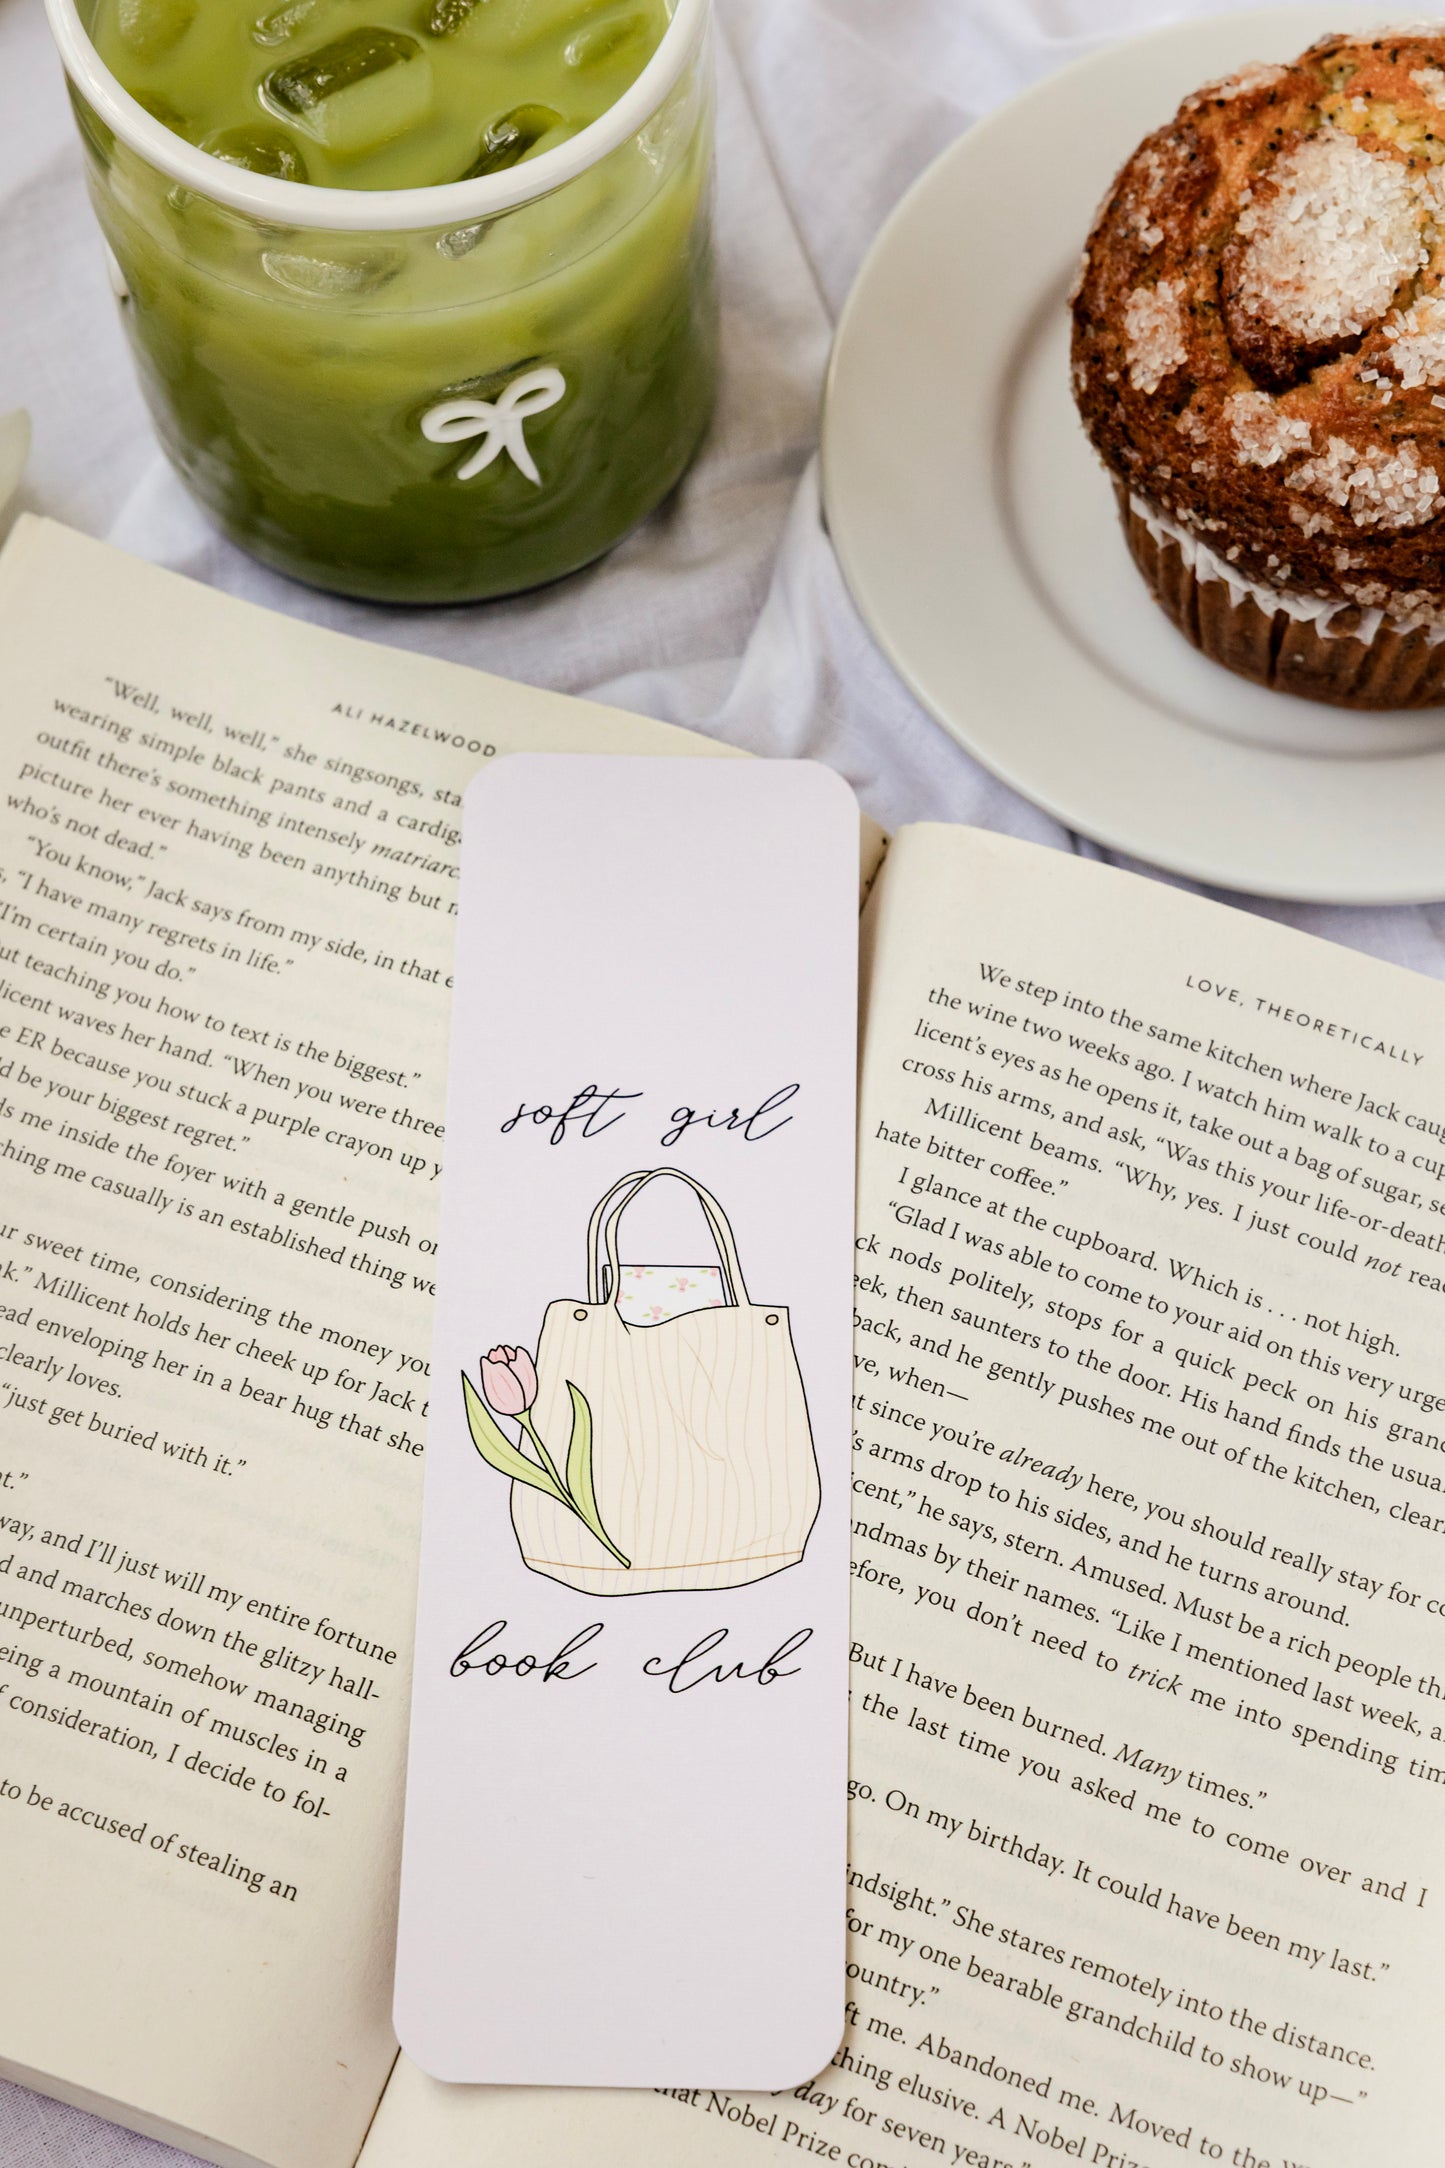 ALI HAZELWOOD
"Well, well, well," she singsongs,
wearing simple black pants and a
outfit there's something intensely
picture her ever having been anything but
who's not dead."
"You know," Jack says from my side, in that
"I have many regrets in life."
"I'm certain you do."
teaching you how to text is the biggest."
waves her hand. "When you were three
ER because you stuck a purple crayon up
be your biggest regret."
me inside the foyer with a gentle push
me casually is an established thing
sweet time, considering the money
Millicent holds her cheek up for Jack
enveloping her in a bear hug that she
clearly loves.
"just get buried with it."
and I'll just will my entire fortune
and marches down the glitzy hall-
unperturbed, somehow managing
a mountain of muscles in a
consideration, I decide to fol-
to be accused of stealing an
soft girl
book club
LOVE, THEORETICALLY
We step into the same kitchen where Jack
the wine two weeks ago. I watch him walk to a
licent's eyes as he opens it, take out a bag of sugar,
cross his arms, and ask, "Was this your life-or-death
Millicent beams. "Why, yes. I just could not
hate bitter coffee."
I glance at the cupboard. Which is . . . not high.
"Glad I was able to come to your aid on this very
nods politely, stops for a quick peck on his
then saunters to the door. His hand finds the
back, and he gently pushes me out of the kitchen,
when—
since you're already here, you should really stay for
arms drop to his sides, and he turns around.
he says, stern. Amused. Must be a rich people
by their names. "Like I mentioned last week,
you don't need to trick me into spending
But I have been burned. Many times."
the last time you asked me to come over and I
On my birthday. It could have been my last."
She stares remotely into the distance.
for my one bearable grandchild to show up—"
me. Abandoned me. Moved to the
elusive. A Nobel
day for seven years."
that Nobel Prize